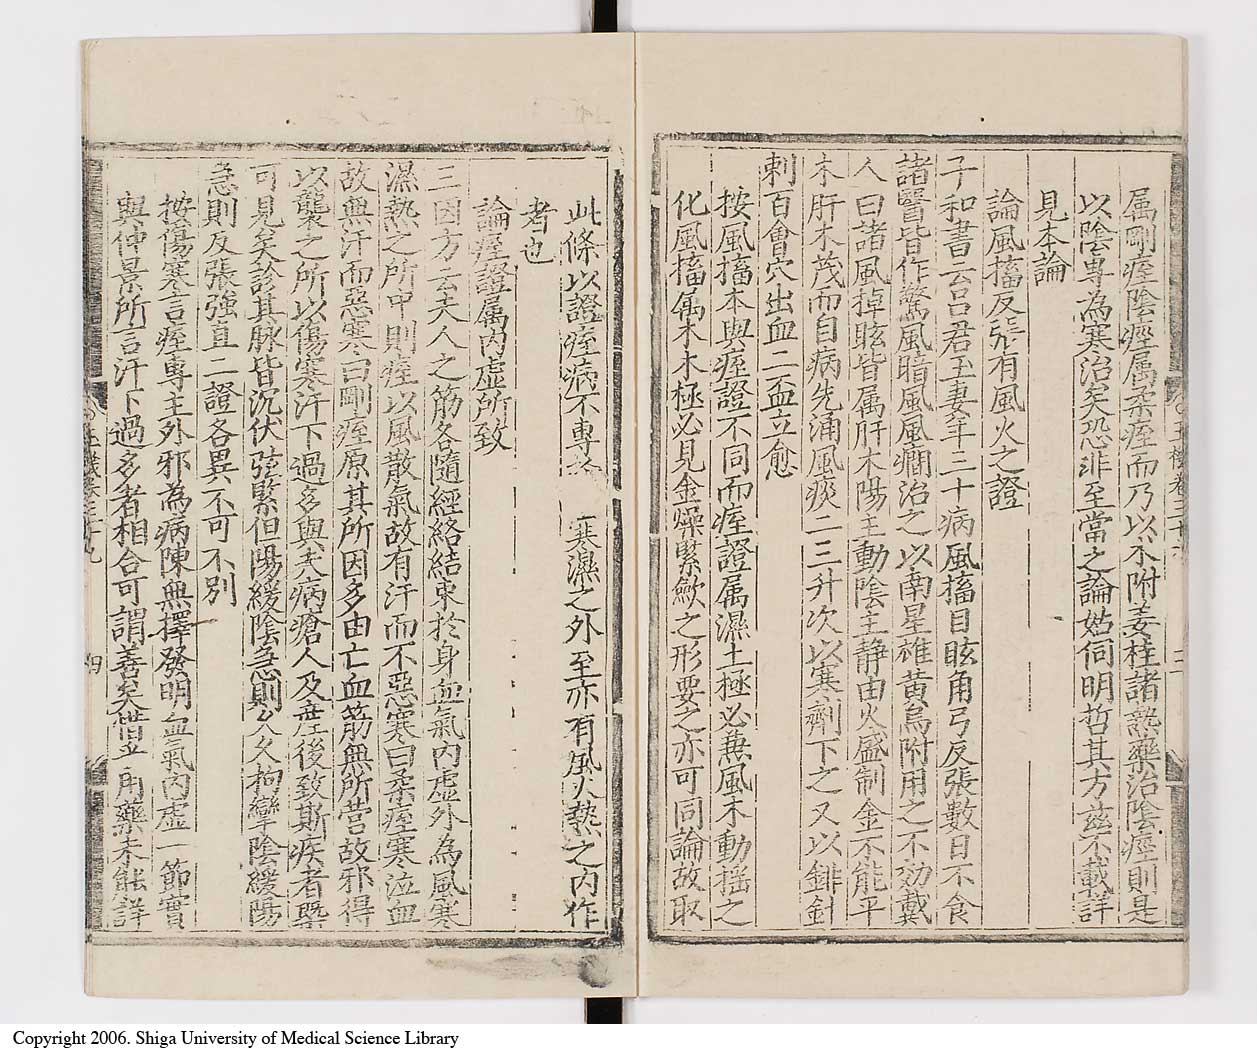 属剛痓陰痙属柔痓而乃以不附姜桂諸熱藥治陰痙則是
以陰専為寒治矣恐非至當之論姑伺明哲其方茲不載詳
見本論
論風搐反張有風火之證
子和書云呂君玉妻年三十病風搐目眩角弓反張數日不食
諸醫皆作驚風暗風風癇治之以南星雄黄烏附用之不効戴
人曰諸風掉眩皆属肝木陽主動陰主静由火盛制金不能平
木肝木茂而自病先涌風痰二三升次以寒劑下之又以鈚針
刺百會穴出血二盃立愈
按風搐本與痓證不同而痓證属濕土極必兼風木動揺之
化風搐属木木極必見金燥緊歛之形要之亦可同論故取
此條以證痓病不専 寒濕之外至亦有風火熱之内作
者也
論痓證属内虚所致
三因方云夫人之筋各隨經絡結束於身血氣内虚外為風寒
濕熱之所中則痓以風散氣故有汗而不惡寒曰柔痓寒泣血
故無汗而惡寒曰剛痓原其所因多由亡血筋無所营故邪得
以襲之所以傷寒汗下過多與夫病瘡人及産後致斯疾者槩
可見矣診其脉皆沉伏弦緊但陽緩陰急則久久拘攣陰緩陽
急則反張強直二證各異不可不别
按傷寒言痓専主外邪為病陳無擇發明血氣内虚一節實
與仲景所言汗下過多者相合可謂善矣惜乎用藥未能詳